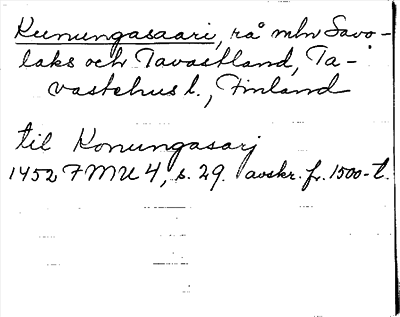 Kunungasaari, rå mln Savo-
laks och Tavastland, Ta-
vastehus l., Finland
til Konungasarj
1452 FMU 4, s. 29. avskr. fr. 1500-t.